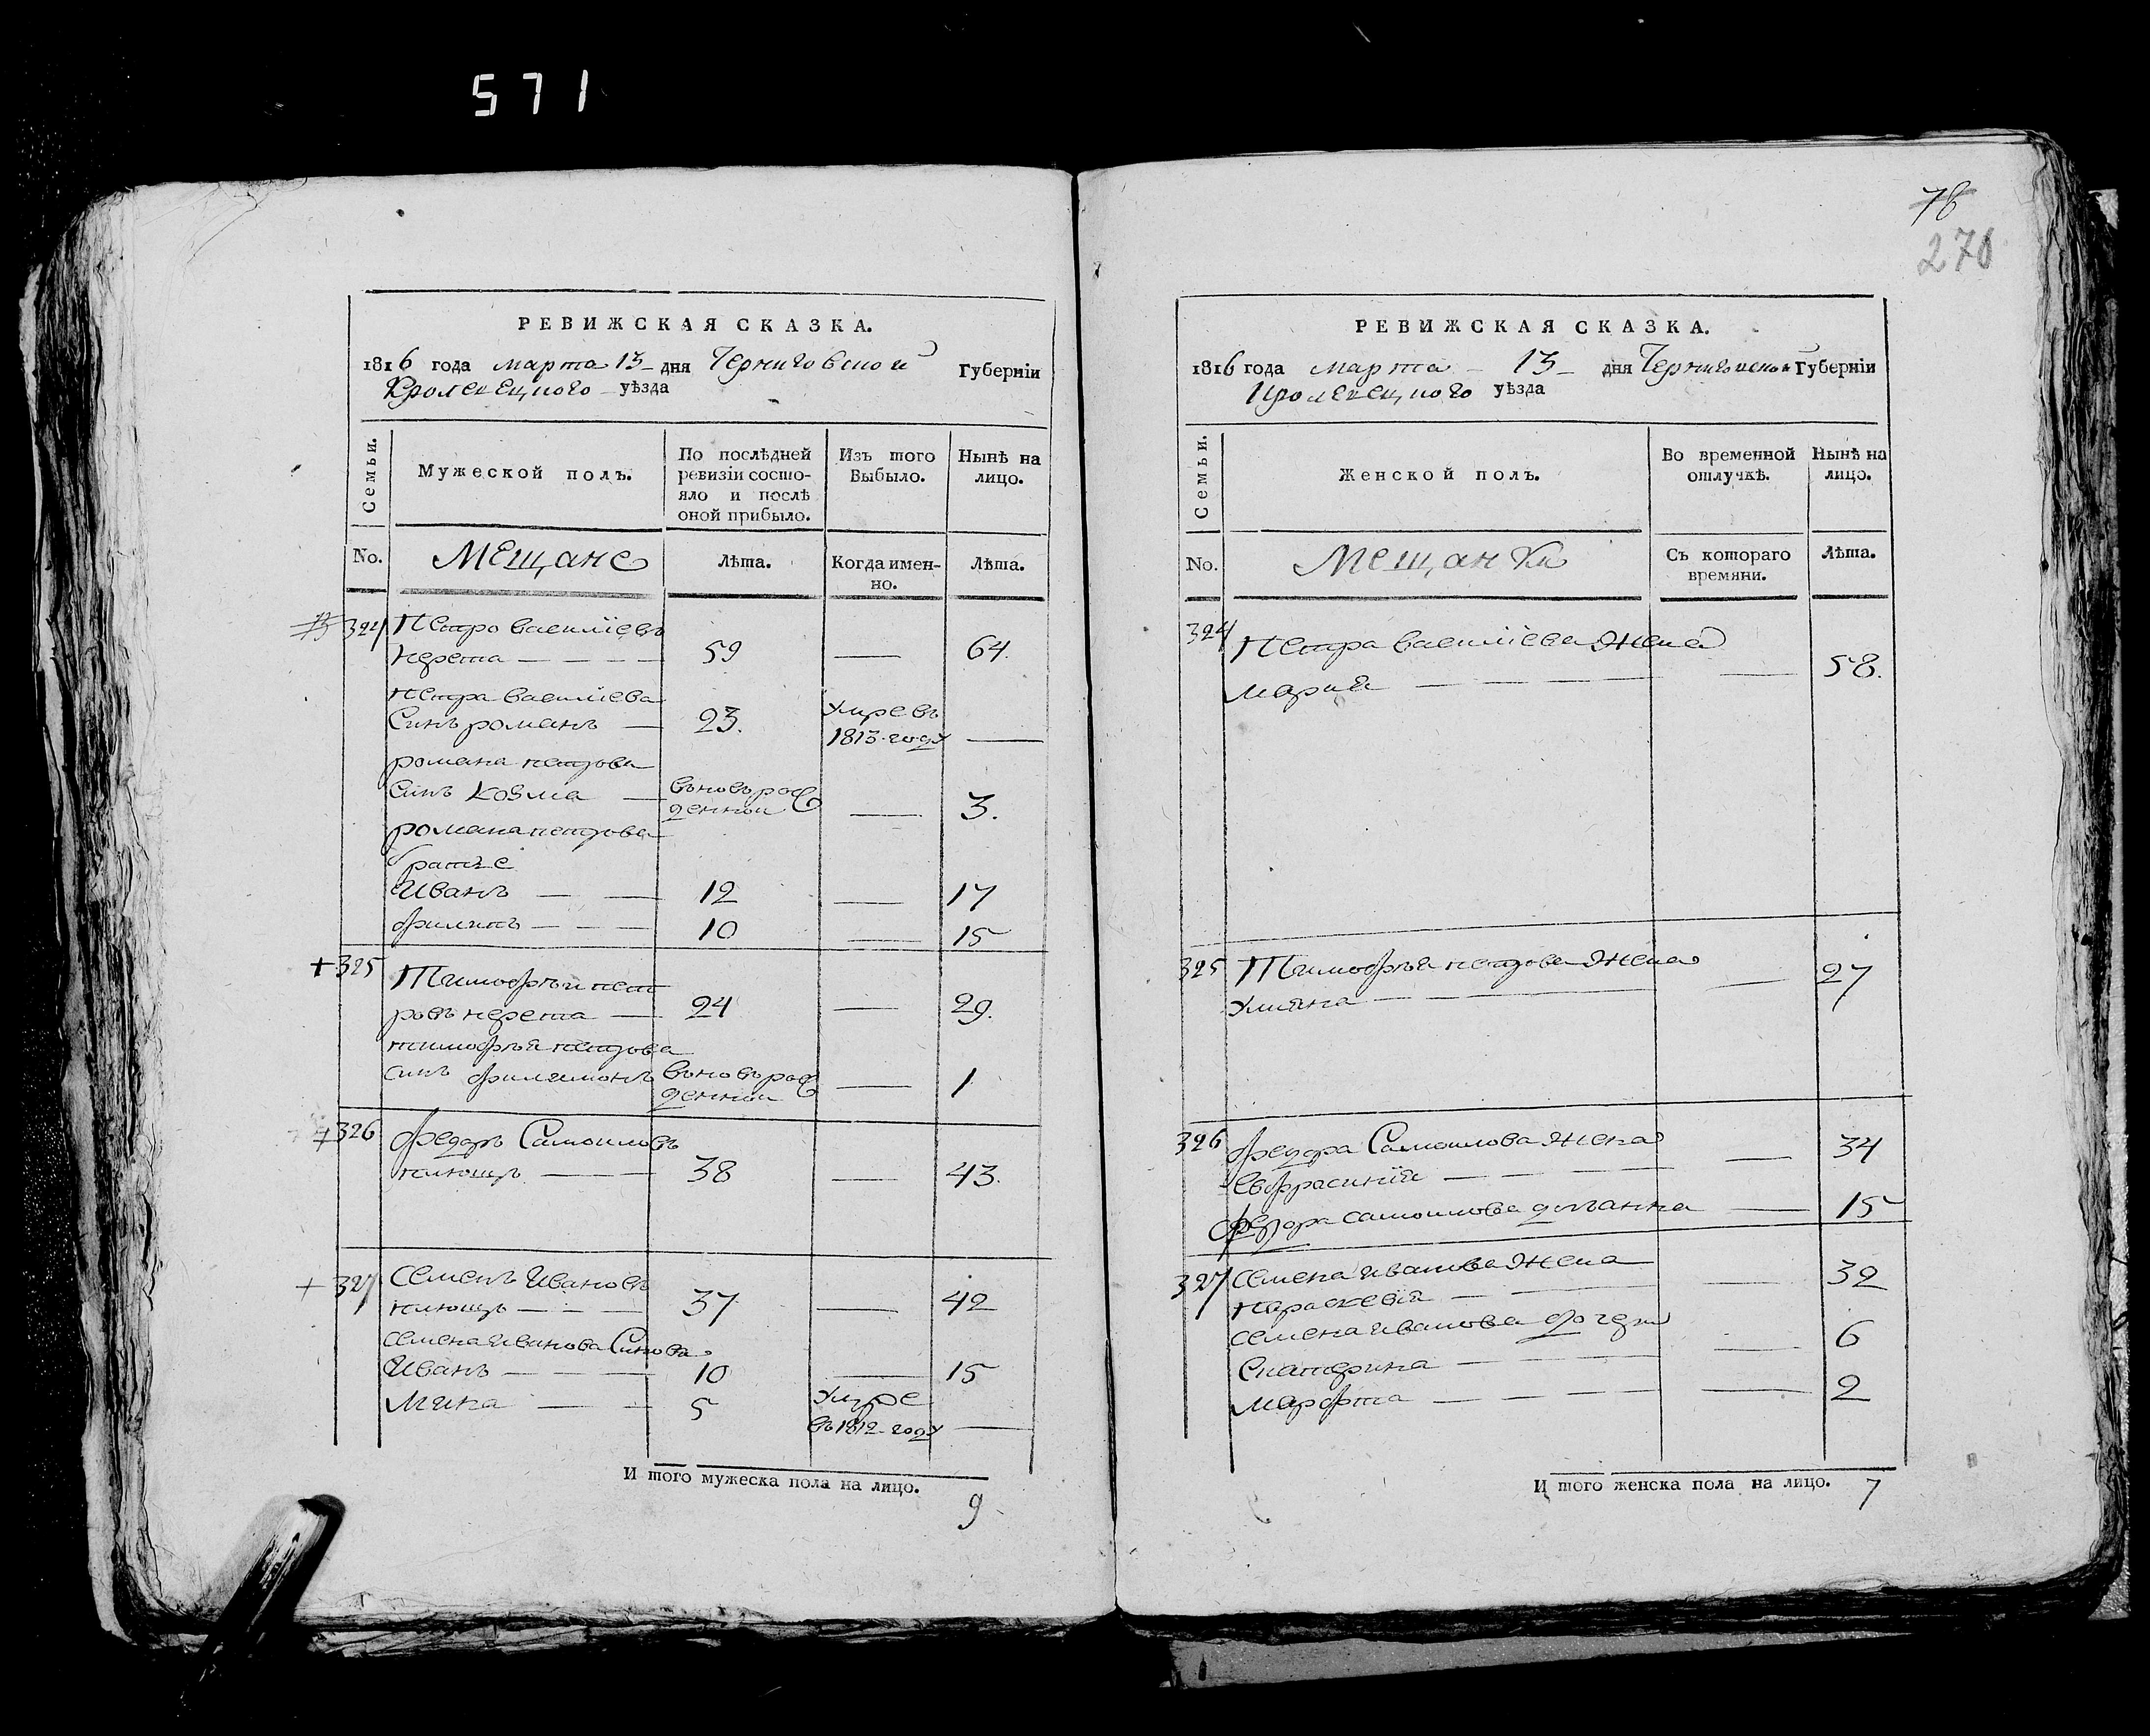 571
78
270
РЕВИЖСКАЯ СКАЗКА.
1816 года марта 13 дня Черниговской Губерніи
Кролевецкого уѣзда
Семьи.
Мужеской полъ.
По послѣдней ревизіи состо-
яло и послѣ оной прибыло.
Изъ того Выбыло.
Нынѣ на лицо.
No. Мещане Лѣта. Когда имен-
но. Лѣта.
324 Петро василіевъ
перета — 59 — 64.
петра василіева
Синъ романъ — 23. Умре въ
1813-году —
романа петрова
Синъ козма — вьновь рож
деннои — 3.
романа петрова
братье
Иванъ — 12 — 17
филипъ — 10 — 15
+ 325 Тимофѣй пет
ровъ перета — 24 — 29.
тимофѣя петрова
синъ филимонъ вьновь рож
деннои — 1
326 федоръ Самоиловъ
клющъ — 38 — 43.
+ 327 Семенъ Ивановъ
клющъ — 37 — 42
семена иванова Синова
Иванъ — 10 — 15
Мина — 5 Умре
въ 1812-году —
И того мужеска пола на лицо.
9
РЕВИЖСКАЯ СКАЗКА.
1816 года марта 13 дня Черниговской Губерніи
Кролевецкого уѣзда
Семьи.
Женской полъ.
Во временной отлучкѣ.
Нынѣ на лицо.
No. Мещанки Съ котораго
времяни. Лѣта.
324 Петра василіева Жена
марія — — 58.
325 Тимофѣя петрова Жена — 27
Улияна —
326 федора Самоилова жена — 34
Евфрасинія —
федора самоилова дочь анна — 15
327 семена иванова Жена — 32
параскевія —
семена иванова дочери
Екатерина — — 6
марфта — — 2
И того женска пола на лицо. 7